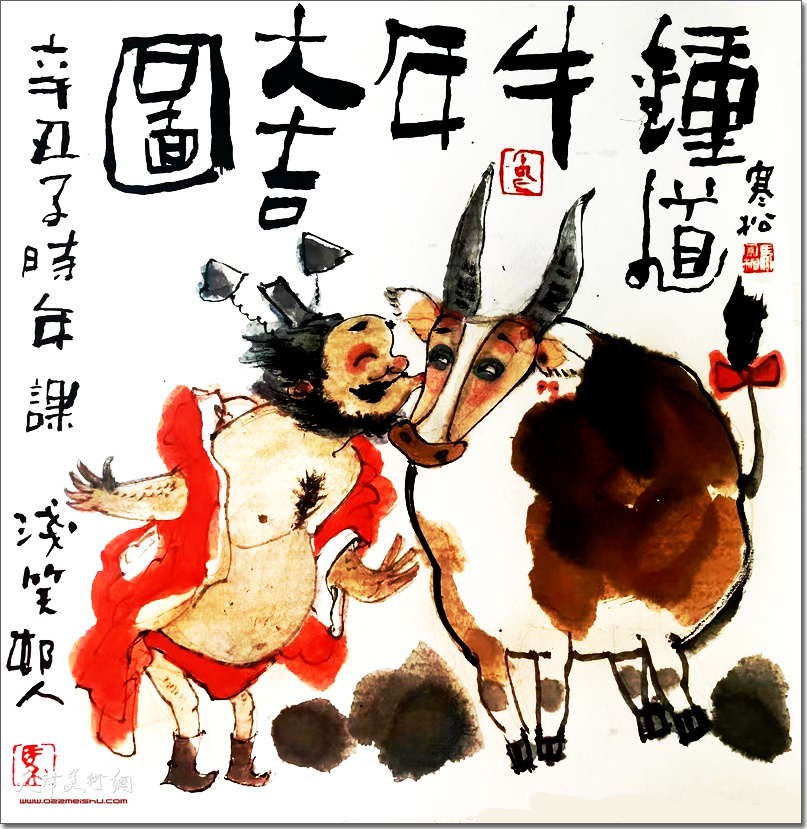 鍾道
牛年大吉圖
寒松
辛丑子時年課
淺笑邨人
天津美術網
www.022meishu.com